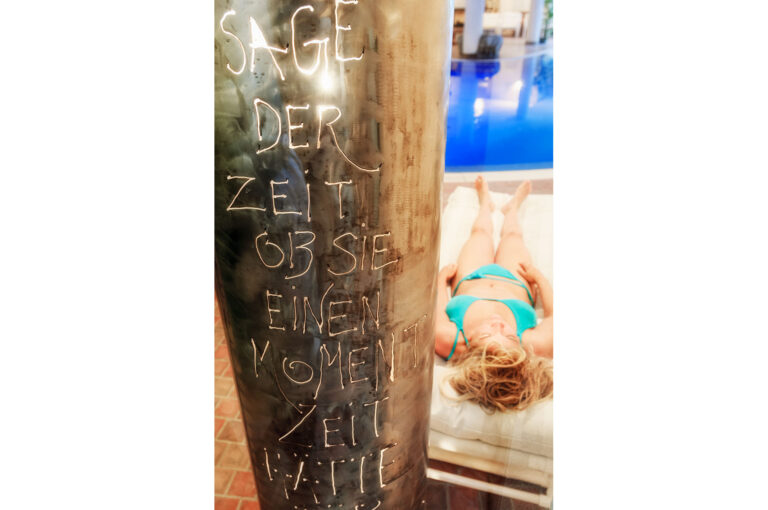 SAGE
DER
ZEIT
OB SIE
EINEN
MOMENT
ZEIT
HÄTTE